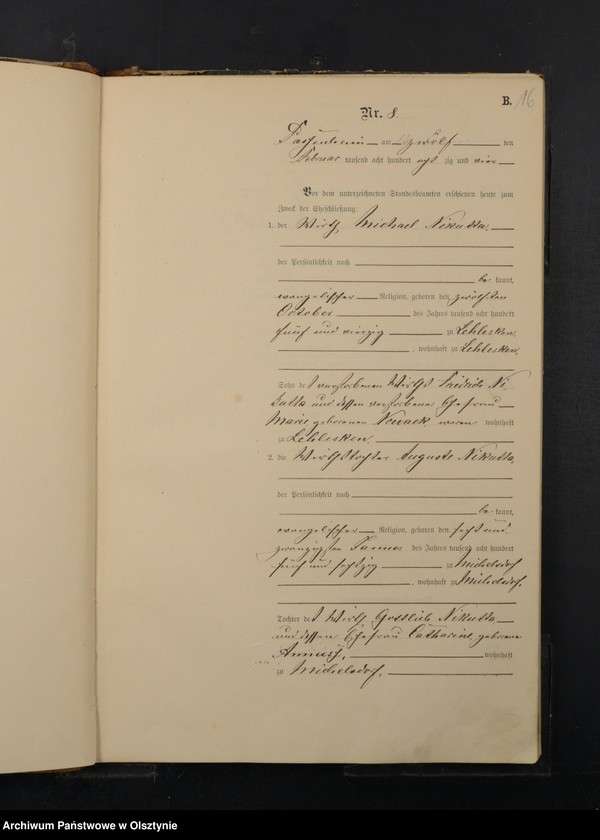 B. 16
Nr. 8.
Passenheim am zwölf ten
Februar tausend acht hundert acht zig und vier
Vor dem unterzeichneten Standesbeamten erschienen heute zum
Zweck der Eheschließung:
1. der Wirth Michael Nikutta,
der Persönlichkeit nach
be kannt,
evangelischer Religion, geboren den zwölften
October des Jahres tausend acht hundert
fünf und vierzig zu Lehlesken
, wohnhaft zu Lehlesken,
Sohn des verstorbenen Wirths Friedrich Ni-
kutta und dessen verstorbener Ehefrau
Marie geborenen Nowack, waren wohnhaft
zu Lehlesken,
2. die Wirthstochter Auguste Nikutta,
der Persönlichkeit nach
be kannt,
evangelischer Religion, geboren den sechs und
zwanzigsten Januar des Jahres tausend acht hundert
fünf und sechzig zu Michelsdorf
, wohnhaft zu Michelsdorf,
Tochter des Wirth Gottlieb Nikutta
und dessen Ehefrau Catharine, geborene
wohnhaft
zu Michelsdorf,
Archiwum Państwowe w Olsztynie